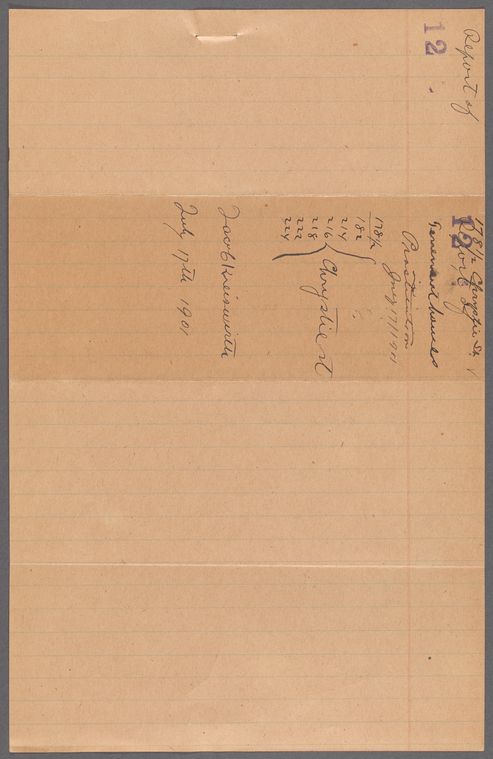 Report of
12
178 1/2 Chrystie St
Report of
12
Tenement houses
Prostitution
July 17/1901
178 1/2
182
214
216
218
222
224
Chrystie st
Jacob Kreiswirth
July 17th 1901